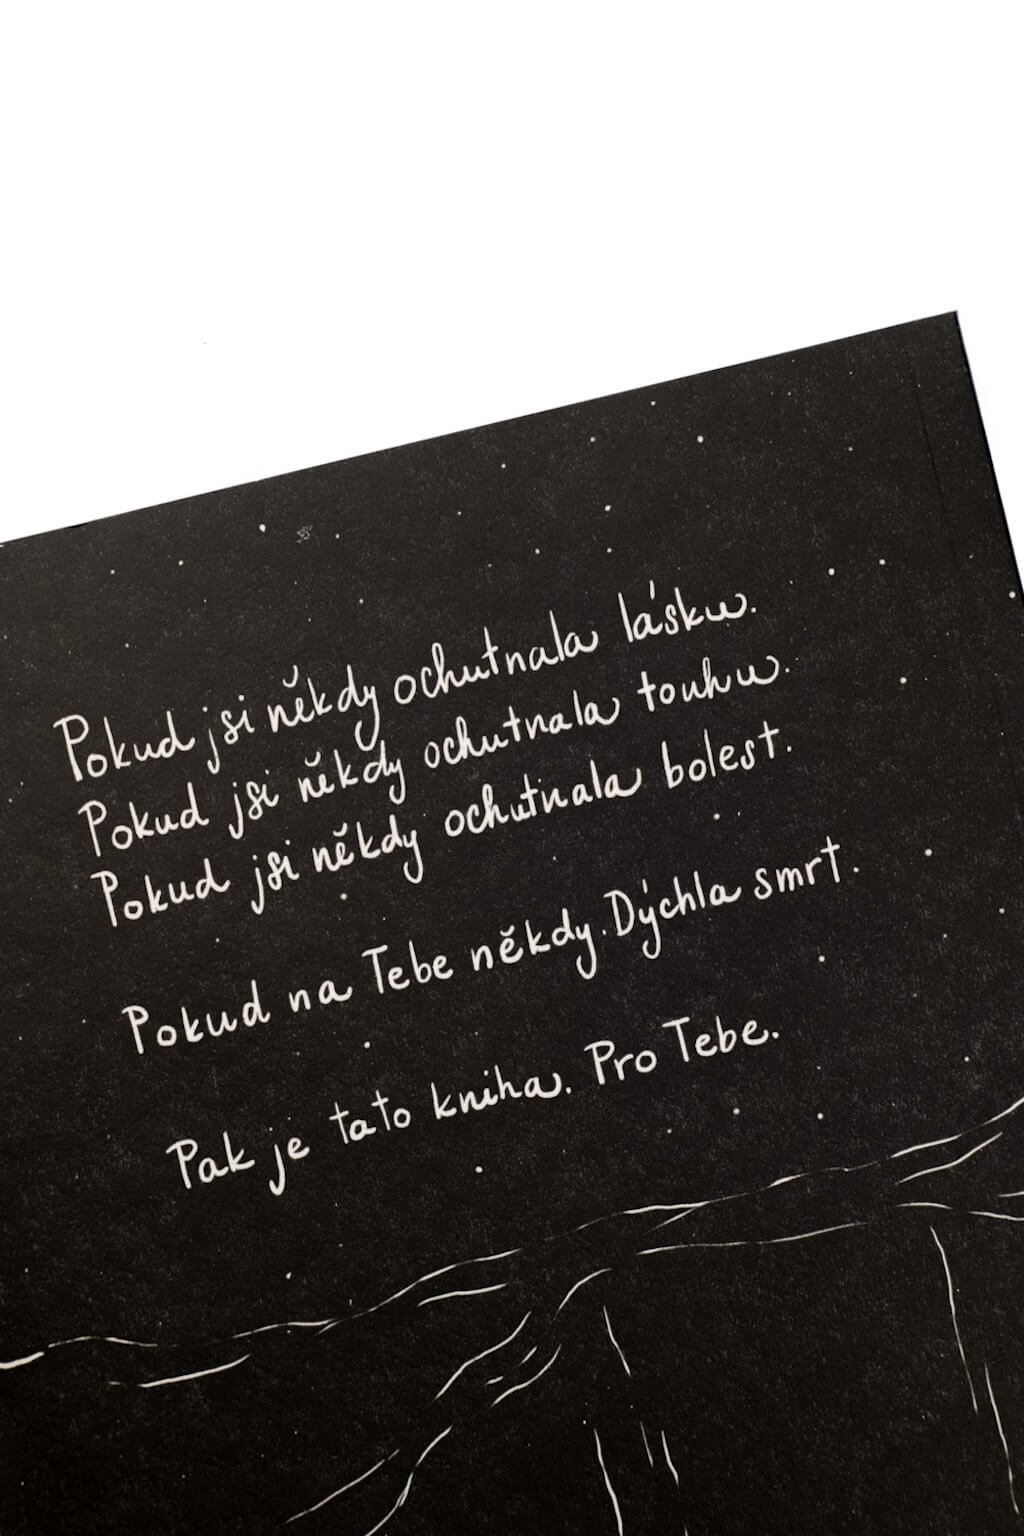 Pokud jsi někdy ochutnala lásku.
Pokud jsi někdy ochutnala touhu.
Pokud jsi někdy ochutnala bolest.
Pokud na Tebe někdy. Dýchla smrt.
Pak je tato kniha. Pro Tebe.